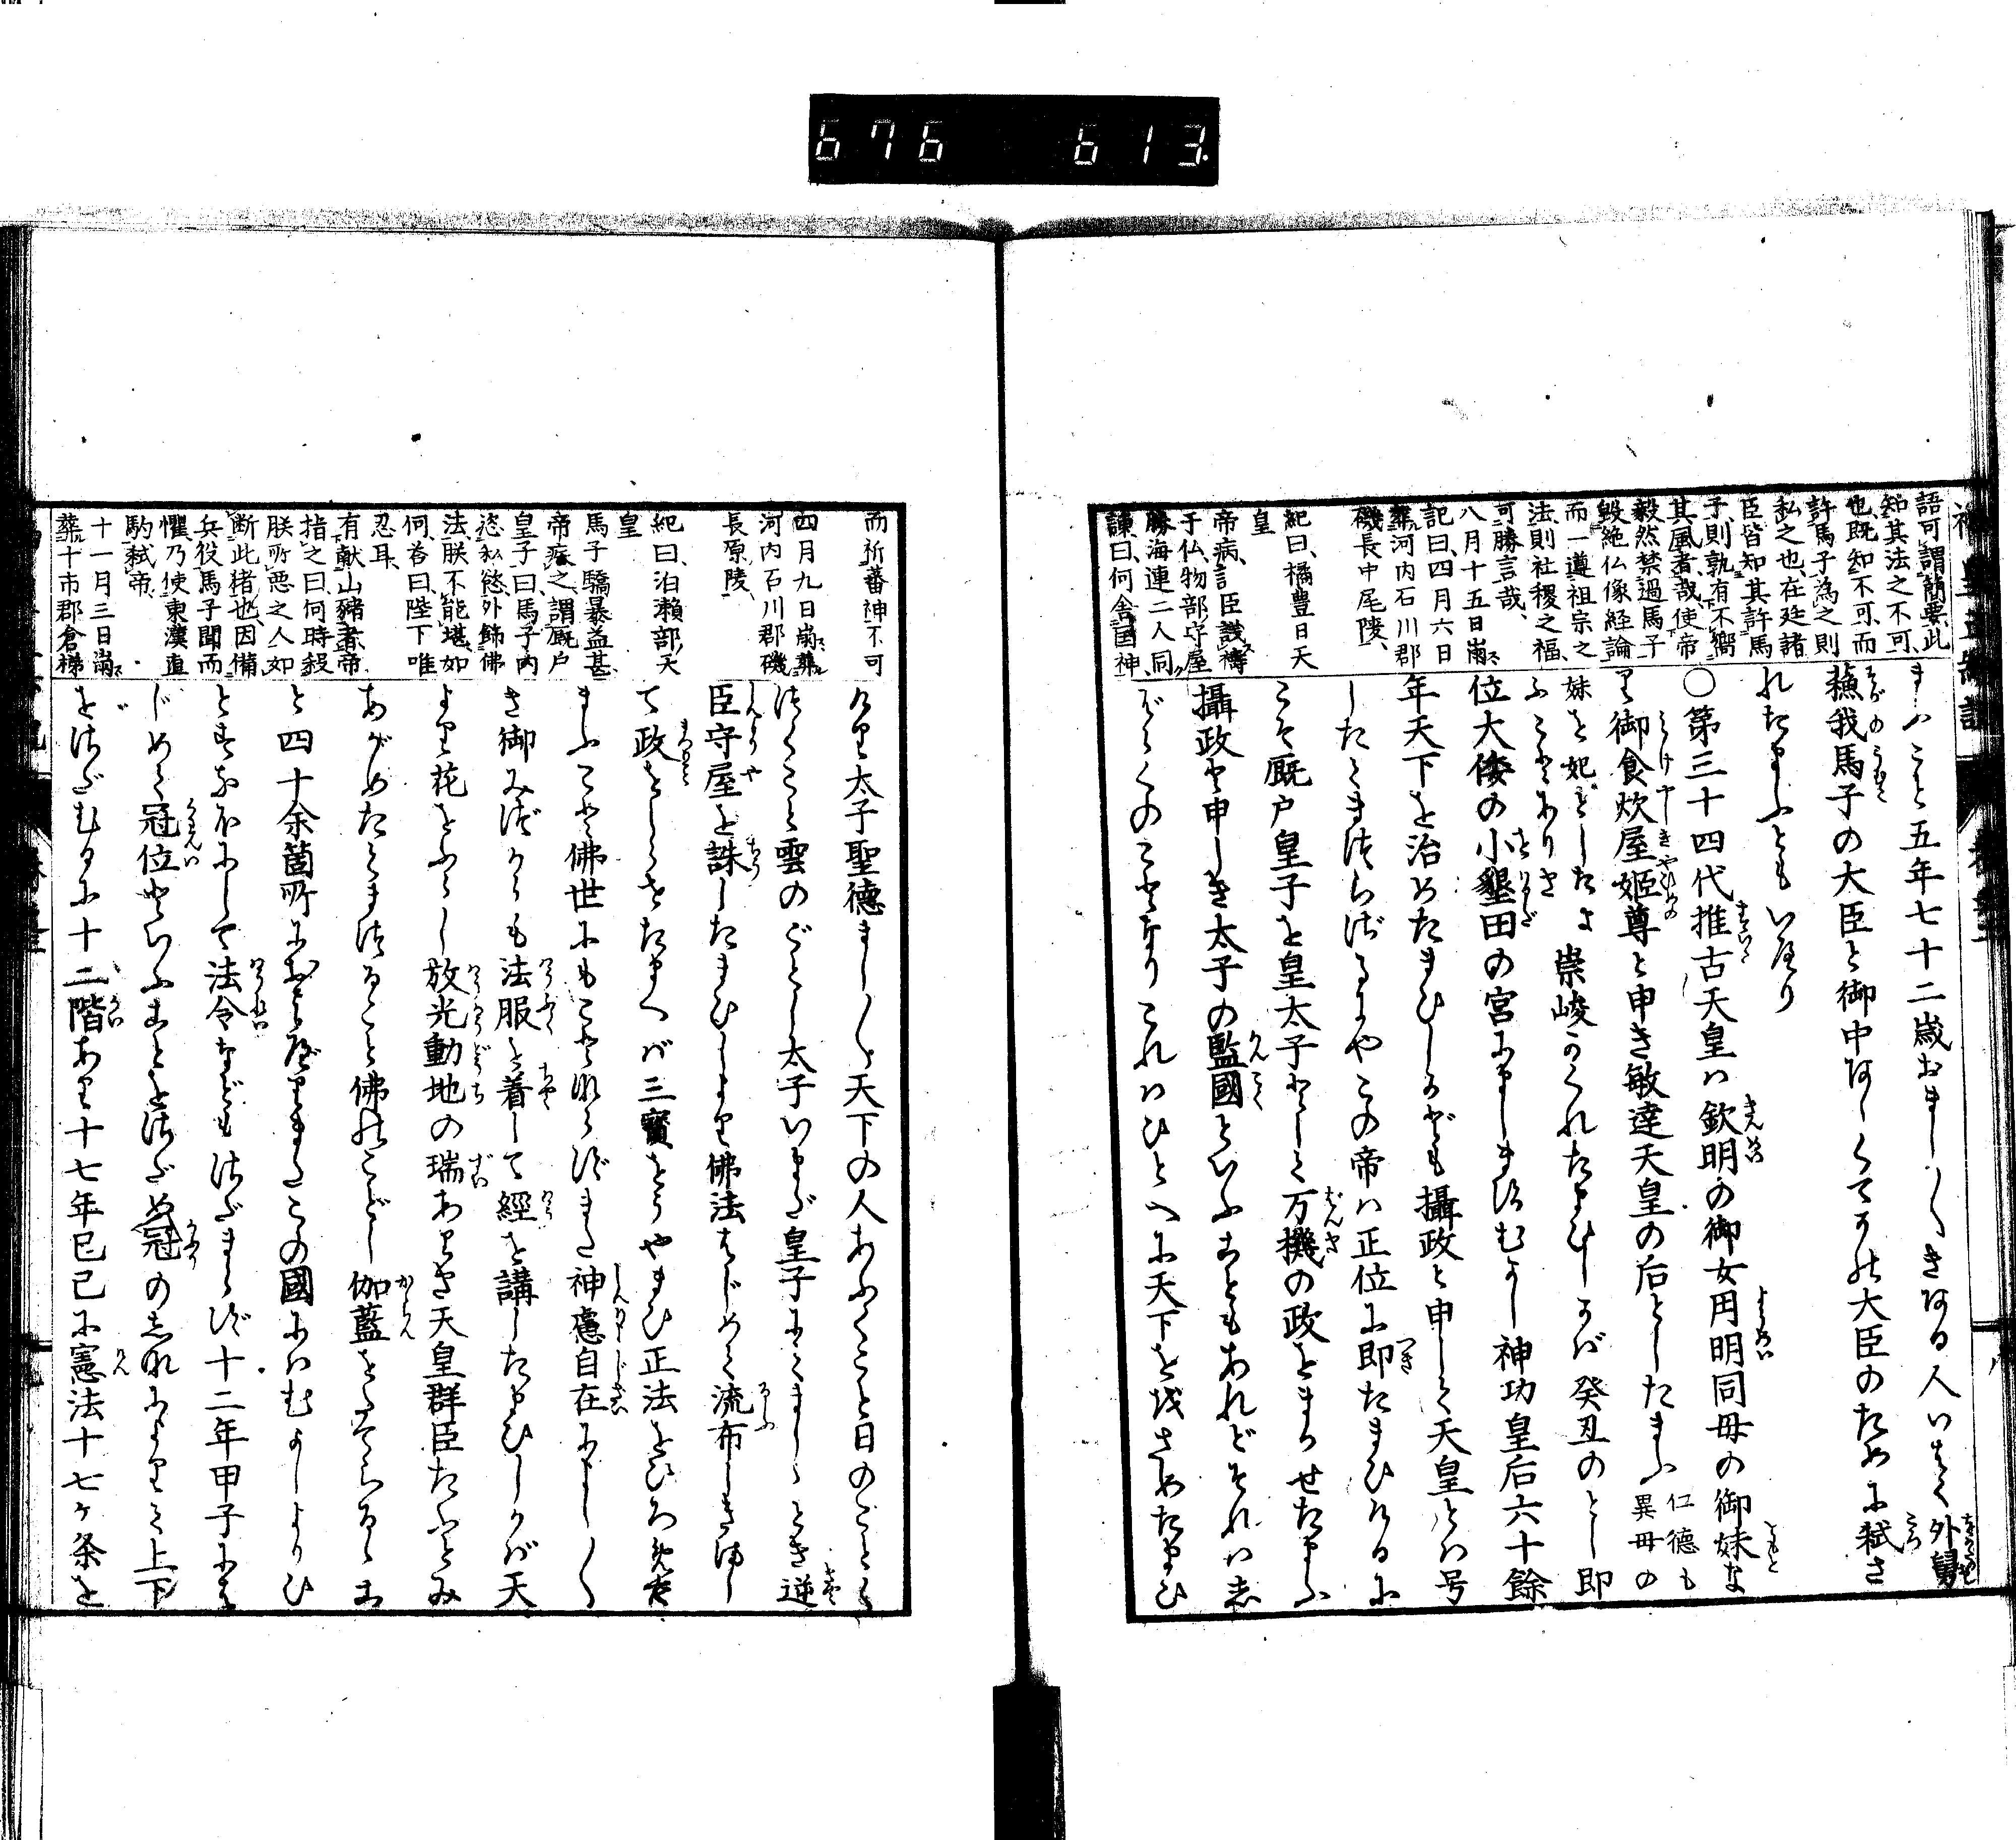 676 613
語可謂簡要、此
知其法之不可、
也既知不可、而
許馬子為之則
私之也、在廷諸
臣皆知其許馬
子、則孰有不嚮
其風者哉、使帝
毅然禁過馬子
毀絶仏像経論
而一遵祖宗之
法、則社稷之福、
可勝言哉、
八月十五日崩
記曰、四月六日
葬河内石川郡
磯長中尾陵、
紀曰、橘豊日天
皇
帝病、詔臣議祷
于仏物部守屋
勝海連二人同
諫曰、何舎国神
まハこと五年七十二歳おまし〱き或る人いはく外舅
蘓我馬子の大臣と御中あしくてかの大臣のために弑さ
れたまふともいへり
〇第三十四代推古天皇ハ欽明の御女用明同母の御妹な
り御食炊屋姫尊と申き敏達天皇の后としたまふ仁徳も異母の
妹を妃としたまふことありき崇峻かくれたまひしかば癸丑のとし即
位大倭の小墾田の宮にましますむかし神功皇后六十餘
年天下を治めたまひしかども攝政と申して天皇とハ号
したてまつらざるにやこの帝ハ正位に即たまひけるに
こそ厩戸皇子を皇太子として万機の政をまかせたまふ
攝政と申しき太子の監國といふこともあれどそれハ志
ばらくのことなりこれハひとへに天下を治さめたまひ
而祈蕃神不可
四月九日崩葬
河内石川郡磯
長原陵、
紀曰、泊瀬部天
皇
馬子驕暴益甚、
帝疾之、謂厩戸
皇子曰、馬子内
恣私慾、外飾佛
法、朕不能堪、如
何、答曰、陛下唯
忍耳、
有献山豬者、帝
指之曰、何時殺
朕所悪之人、如
断此猪也、因備
兵役馬子聞而
懼、乃使東漢直
駒弑帝
十一月三日崩
葬十市郡倉梯
けり太子聖徳まし〱て天下の人あふくこと日のごとく
つくこと雲のごとし太子いまだ皇子にてましゝとき逆
臣守屋を誅したまひしより佛法はじめて流布しきまし
て政をしらせたまへバ三寶をうやまひ正法をひろめたま
まふこと佛世にもことならずまた神通自在にまし〱
き御みづからも法服を着して經を講したまひしかバ天
より花をふらし放光動地の瑞ありき天皇群臣たふとみ
あがめたてまつること佛のごとし伽藍をたてらるゝこ
と四十余箇所におよべりまたこの國にハむかしより人
とすなほにして法令なども定まらず十二年甲子には
じめて冠位といふことを定め冠の志なによりて上下
を定むるに十二階あり十七年己巳に憲法十七ヶ条を